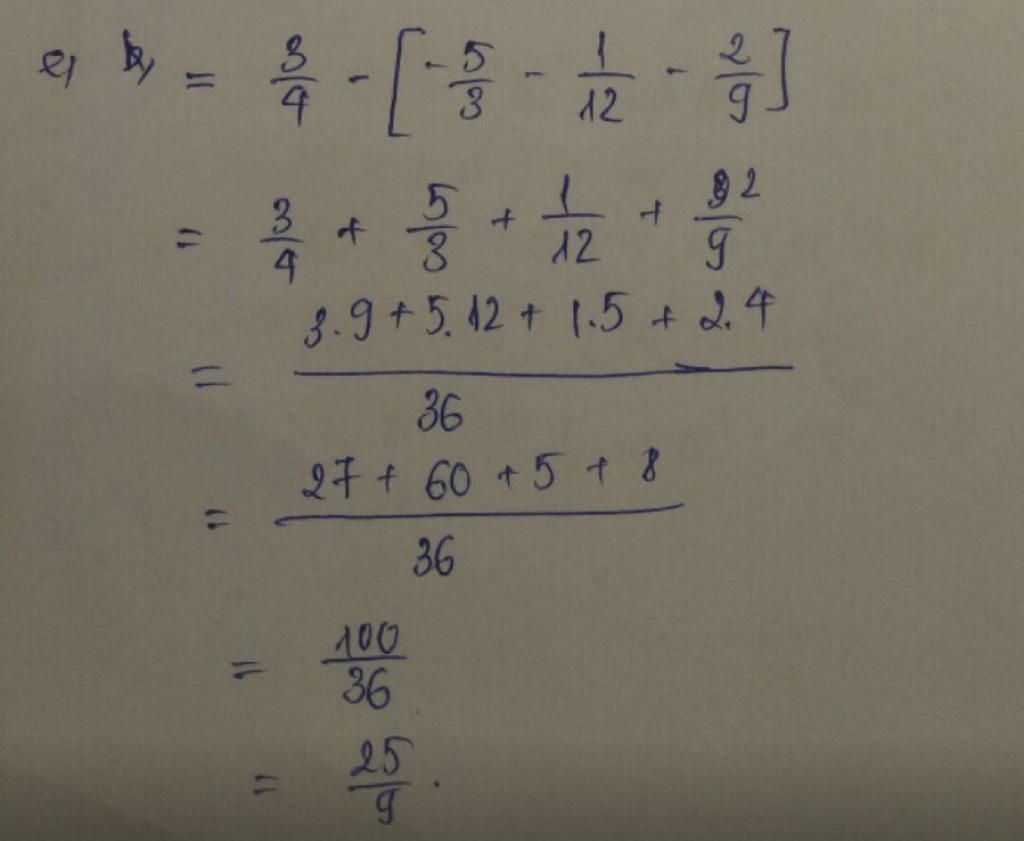 c, b, = 3/4 - [-5/3 - 1/12 - 2/9]
= 3/4 + 5/3 + 1/12 + 2/9
= (3.9 + 5.12 + 1.5 + 2.4)/36
= (27 + 60 + 5 + 8)/36
= 100/36
= 25/9.